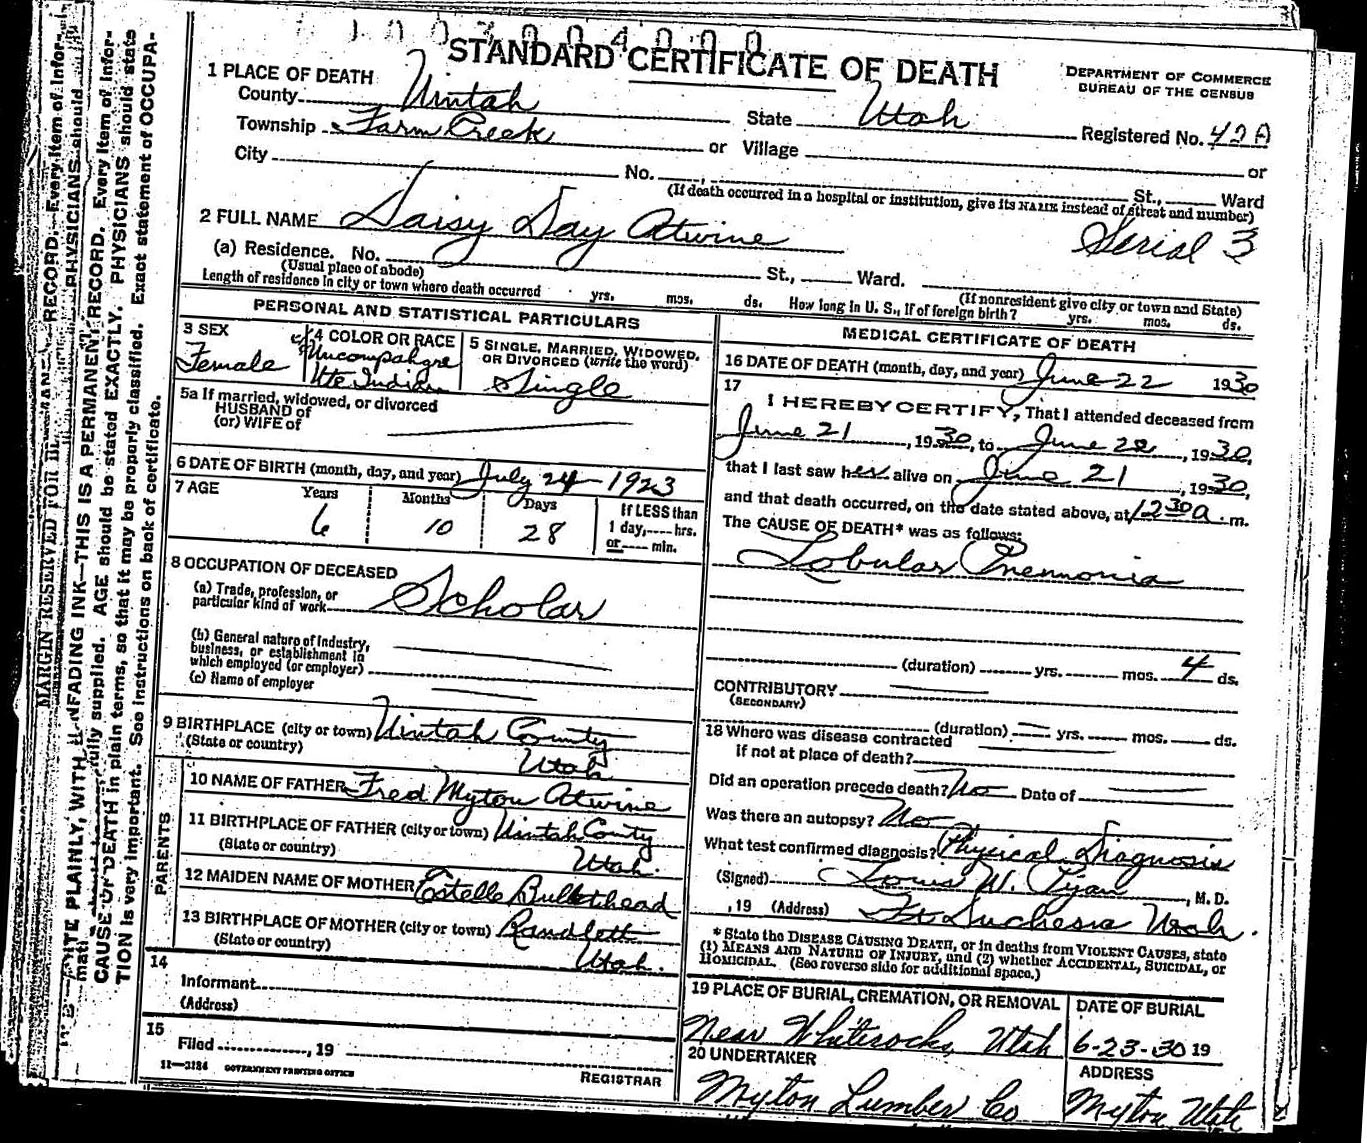 1003004000
STANDARD CERTIFICATE OF DEATH
DEPARTMENT OF COMMERCE
BUREAU OF THE CENSUS
1 PLACE OF DEATH
County Uintah State Utah Registered No. 42A
Township Farm Creek or Village or
City No. St., Ward
(If death occurred in a hospital or institution, give its NAME instead of street and number)
2 FULL NAME Daisy Day Atwine Serial 3
(a) Residence. No. St., Ward.
(Usual place of abode) (If nonresident give city or town and State)
Length of residence in city or town where death occurred yrs. mos. ds. How long in U. S., if of foreign birth? yrs. mos. ds.
PERSONAL AND STATISTICAL PARTICULARS
3 SEX
Female
4 COLOR OR RACE
Uncompahgre
Ute Indian
5 SINGLE, MARRIED, WIDOWED,
OR DIVORCED (write the word)
Single
5a If married, widowed, or divorced
HUSBAND of
(or) WIFE of
6 DATE OF BIRTH (month, day, and year) July 24 1923
7 AGE Years Months Days If LESS than
6 10 28 1 day, hrs.
or min.
8 OCCUPATION OF DECEASED
(a) Trade, profession, or
particular kind of work Scholar
(b) General nature of industry,
business, or establishment in
which employed (or employer)
(c) Name of employer
9 BIRTHPLACE (city or town) Uintah County
(State or country) Utah
PARENTS
10 NAME OF FATHER Fred Myton Atwine
11 BIRTHPLACE OF FATHER (city or town) Uintah County
(State or country) Utah.
12 MAIDEN NAME OF MOTHER Estelle Bullethead
13 BIRTHPLACE OF MOTHER (city or town) Randlett
(State or country) Utah.
14
Informant
(Address)
15
Filed , 19
REGISTRAR
11—3184 GOVERNMENT PRINTING OFFICE
MEDICAL CERTIFICATE OF DEATH
16 DATE OF DEATH (month, day, and year) June 22 1930
17
I HEREBY CERTIFY, That I attended deceased from
June 21, 1930, to June 22, 1930,
that I last saw her alive on June 21, 1930,
and that death occurred, on the date stated above, at 1230 a. m.
The CAUSE OF DEATH* was as follows:
Lobular Pnemonia
(duration) yrs. mos. 4 ds.
CONTRIBUTORY
(SECONDARY)
(duration) yrs. mos. ds.
18 Where was disease contracted
if not at place of death?
Did an operation precede death? No Date of
Was there an autopsy? No
What test confirmed diagnosis? Physical Diagnosis
(Signed) Louis W. , M. D.
, 19 (Address) Ft Duchesne Utah.
* State the DISEASE CAUSING DEATH, or in deaths from VIOLENT CAUSES, state
(1) MEANS AND NATURE OF INJURY, and (2) whether ACCIDENTAL, SUICIDAL, or
HOMICIDAL. (See reverse side for additional space.)
19 PLACE OF BURIAL, CREMATION, OR REMOVAL
Near Whiterocks, Utah
DATE OF BURIAL
6-23-30 19
20 UNDERTAKER
Myton Lumber Co
ADDRESS
Myton Utah
MARGIN RESERVED FOR
WRITE PLAINLY, WITH UNFADING INK—THIS IS A PERMANENT RECORD. Every item of infor-
mation should be carefully supplied. AGE should be stated EXACTLY. PHYSICIANS should state
CAUSE OF DEATH in plain terms, so that it may be properly classified. Exact statement of OCCUPA-
TION is very important. See instructions on back of certificate.